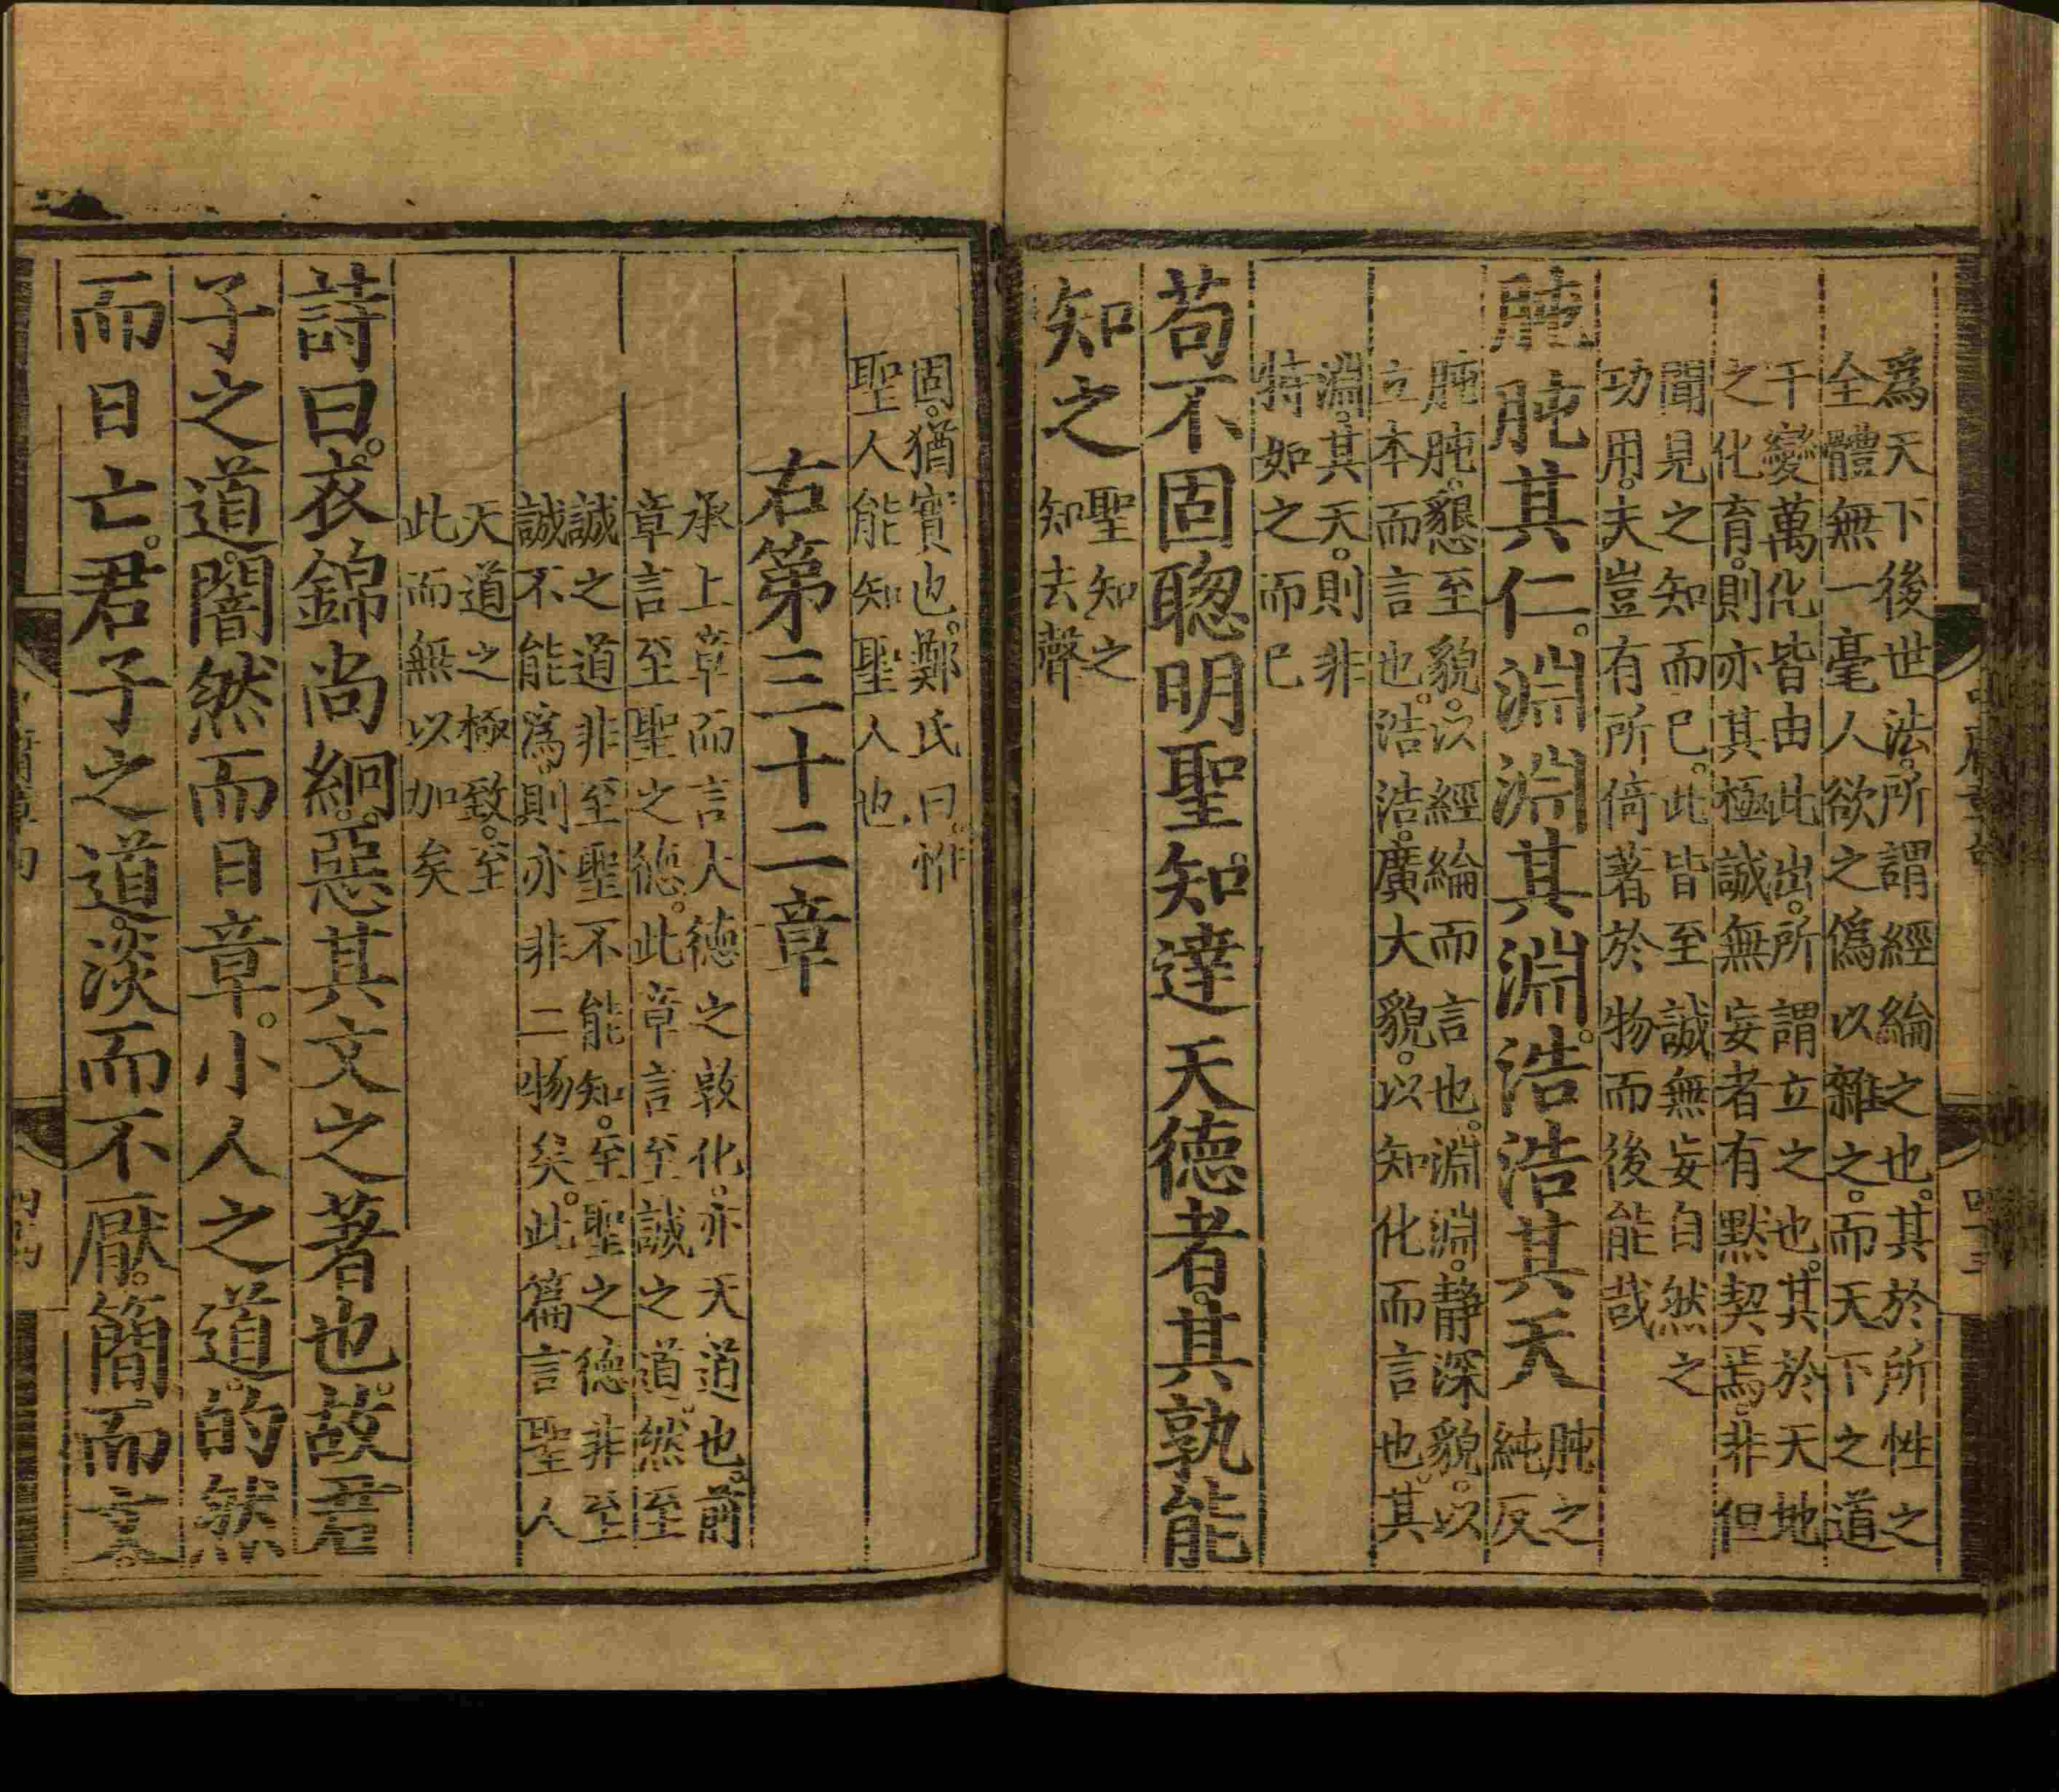 爲天下後世法。所謂經綸之也。其於所性之
全體無一毫人欲之僞以雜之。而天下之道
千變萬化皆由此出。所謂立之也。其於天地
之化育。則亦其極誠無妄者有默契焉。非但
聞見之知而已。此皆至誠無妄自然之
功用。夫豈有所倚著。於物而後能哉
肫肫其仁。淵淵其淵。浩浩其天
肫之
純反
肫肫。懇至貌。以經綸而言也。淵淵。靜深貌。以
立本而言也。浩浩。廣大貌。以知化而言也。其
淵。其天。則非
特如之而已
苟不固聰明聖知達天德者。其孰能
知之
聖知之
知去聲
固。猶實也。鄭氏曰。惟
聖人能知聖人也。
右第三十二章
承上章而言大德之敦化。亦天道也。前
章言至聖之德。此章言至誠之道。然至
誠之道非至聖不能知。至聖之德非至
誠不能爲。則亦非二物矣。此篇言聖人
天道之極致。至
此而無以加矣
詩曰。衣錦尚絅。惡其文之著也。故君
子之道。闇然而日章。小人之道。的然
而日亡。君子之道。淡而不厭。簡而文。